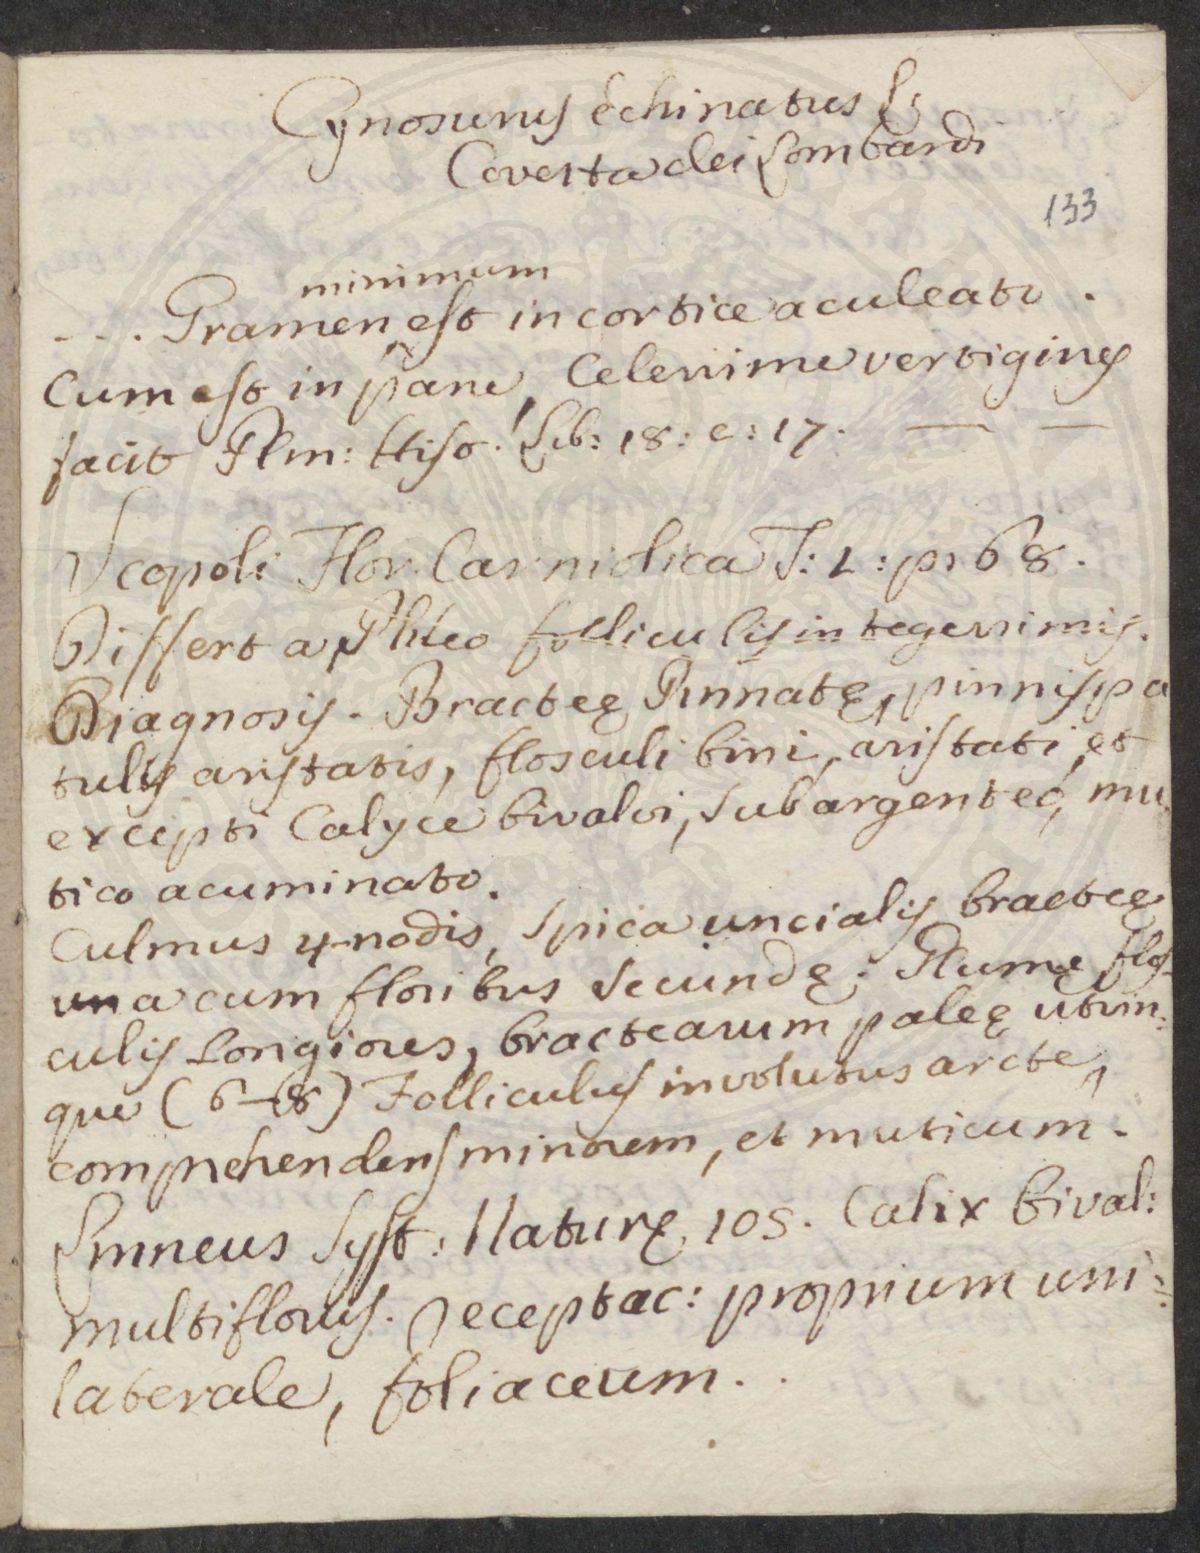 Cynosurus echinatus L:
Coverta dei Lombardi
133
minimum
... Gramen est in cortice aculeato.
Cum est in pane, Celerrime vertigines
facit Plin: Hist. Lib: 18: c: 17. — —
Scopoli Flor. Carniolica T: 1: p: 68.
Differt a Phleo folliculis integerrimis.
Diagnosis. Bracteę Pinnatę, pinnis pa
tulis aristatis, flosculi bini, aristati, et
excepti Calyce bivalvi, subargenteo, mu
tico acuminato.
Culmus 4-nodis, spica uncialis bracteę
una cum floribus secundę: Glumę flos-
culis Longiores, bractearum paleę utrin:
que (6-8) Folliculus involutus arcte,
comprehendens minorem, et muticum.
Linneus Syst: Naturę 105. Calix bival:
multiflorus. receptac: proprium uni:
laterale, foliaceum..